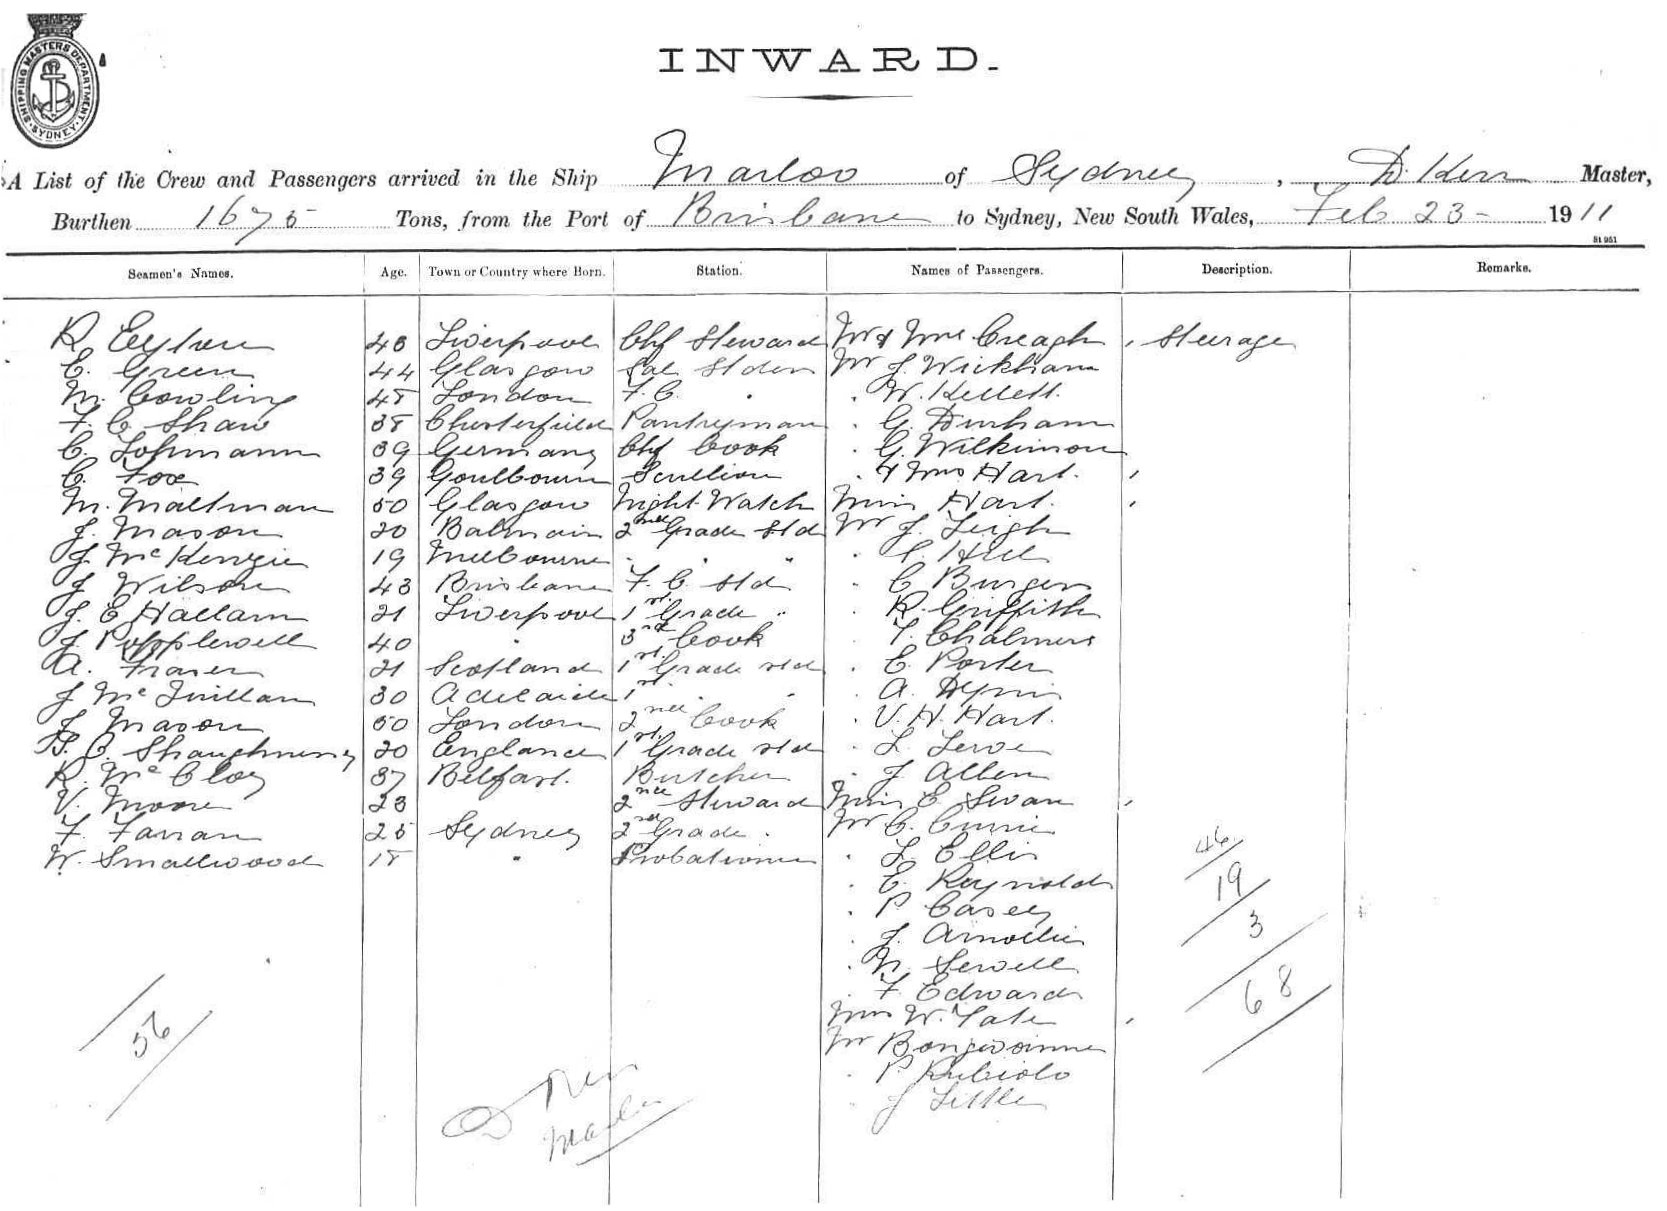 SHIPPING MASTERS DEPARTMENT. SYDNEY.
INWARD.
A List of the Crew and Passengers arrived in the Ship Marloo of Sydney, D. Kerr Master,
Burthen 1675 Tons, from the Port of Brisbane to Sydney, New South Wales, Feb 23 - 1911
St 951
Seamen's Names. Age. Town or Country where Born. Station. Names of Passengers. Description. Remarks.
R 43 Liverpool Chf Steward Mr & Mrs Creagh , Steerage
C. Green 44 Glasgow Mr J. Wickham
M. Cowling 48 London F. C. . . W. Kellett.
F. C. Shaw 38 Chesterfield Pantryman . G. Durham
C. Lohmann 39 Germany Chf Cook . G. Wilkinson
C. Fox 39 Goulbourn Scullion . & Mrs Hart. ,
M. Maltman 50 Glasgow Night Watch Miss Hart. ,
J. Mason 20 Balmain 2nd Grade Std Mr J. Leigh
J. McKenzie 19 Melbourne " " " . Hill
J Wilson 43 Brisbane F. C. Std . C Burgess
J. E Hallam 21 Liverpool 1st Grade " . R. Griffith
J Popplewell 40 " 3rd Cook . T. Chalmers
A. Fraser 21 Scotland 1st Grade Std . E. Porter
J McQuillan 30 Adelaide 1st " " . A.
J. Mason 50 London 2nd Cook . V. H. Hart.
Shaughnessy 20 England 1st Grade Std . L.
R. McCloy 37 Belfast. Butcher . J Allen
V. Moore 23 2nd Steward Miss E. Swan ,
F. Farran 25 Sydney 2nd Grade . Mr C. Currie
W. Smallwood 18 " Probationer . L Ellis
. E. Reynolds
. P. Casey
. J.
. Sewell
. F. Edwards
Mrs W. Tate ,
Mr
. P. Rubiolo
. J Little
46
19
3
68
56
D Kerr
Master